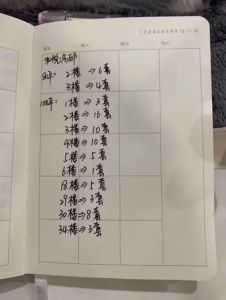 1 2 3 4 5 6 7 8 9 10 11 12
2楼 → 6套
3楼 ⇒ 4套
1楼 ⇒ 3套
2楼 ⇒ 16套
3楼 ⇒ 10套
4楼 ⇒ 10套
5楼 ⇒ 5套
6楼 ⇒ 1套
18楼 ⇒ 5套
29楼 ⇒ 3套
30楼 ⇒ 8套
34楼 ⇒ 3套